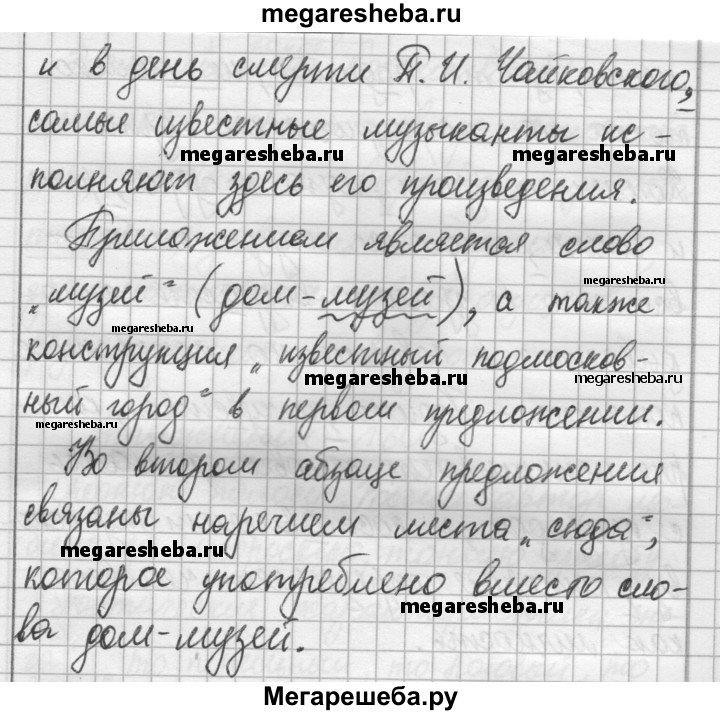 megaresheba.ru
и в день смерти П. И. Чайковского,
самые известные музыканты ис-
megaresheba.ru megaresheba.ru
полняют здесь его произведения.
Приложением является слово
megaresheba.ru
„музей“ (дом-музей), а также
megaresheba.ru
конструкция „известный подмосков-
megaresheba.ru megaresheba.ru
ный город“ в первом предложении.
megaresheba.ru
Во втором абзаце предложения
связаны наречием места „сюда“,
megaresheba.ru
которое употреблено вместо сло-
megaresheba.ru
ва дом-музей.
Мегарешеба.ру